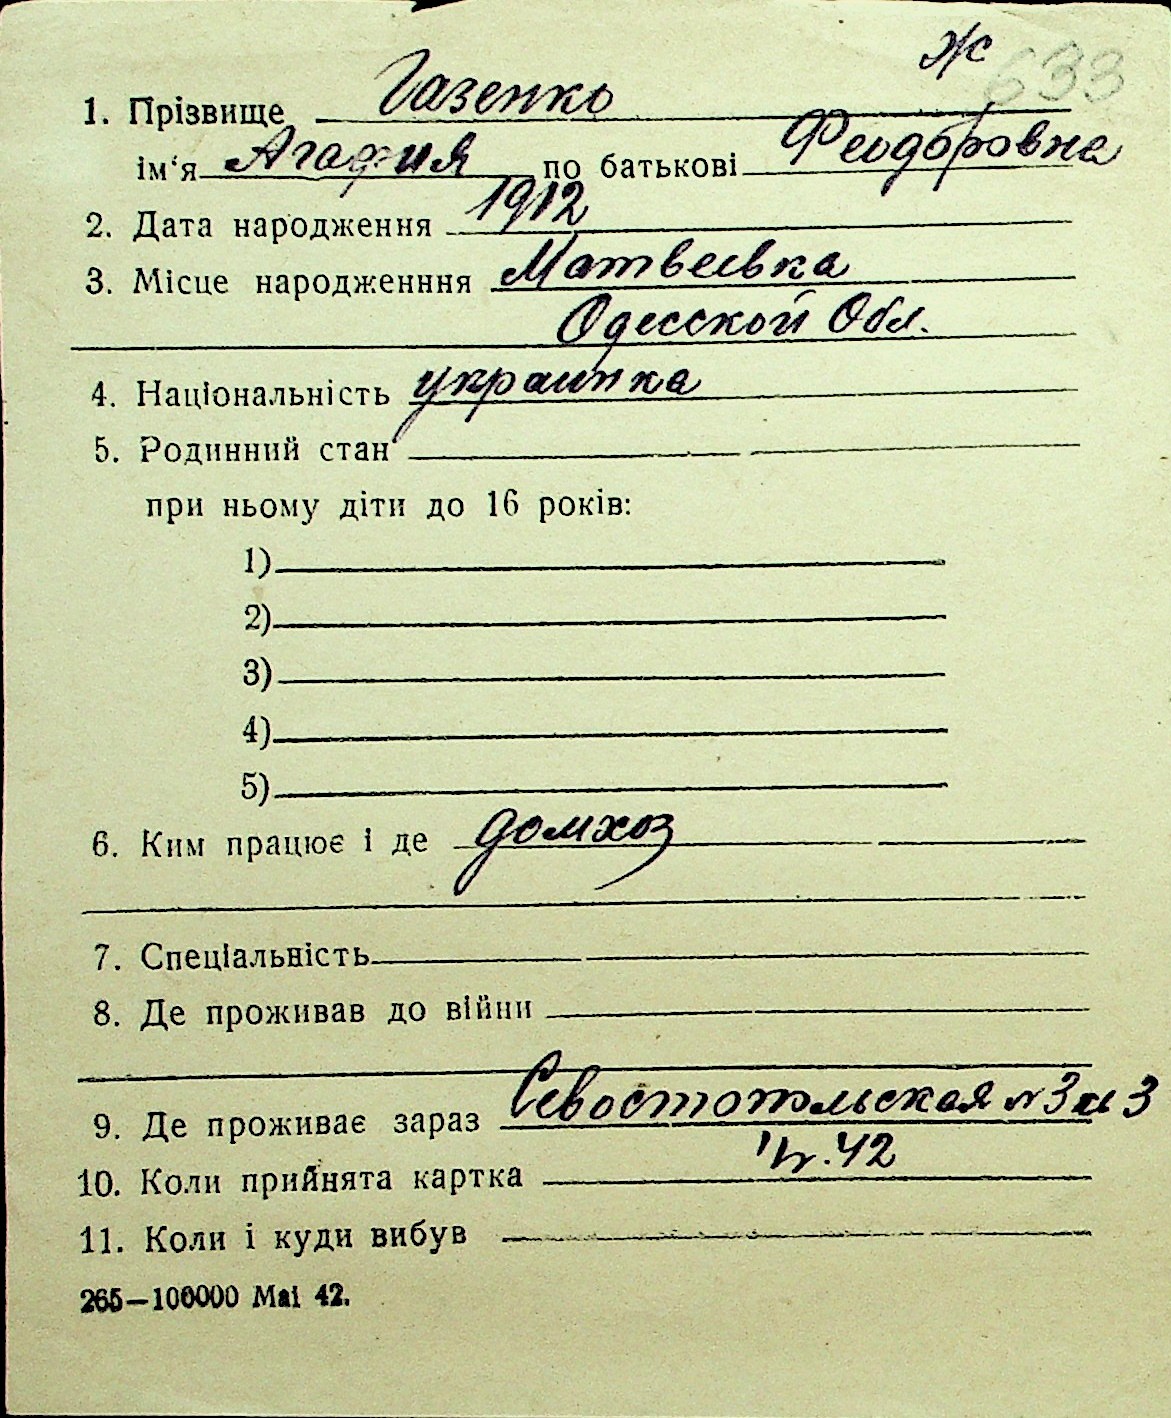 ж 633
1. Прізвище Газенко
ім‘я Агафия по батькові Феодоровна
2. Дата народження 1912
3. Місце народженння Матвеевка
Одесской Обл.
4. Національність украинка
5. Родинний стан
при ньому діти до 16 років:
1)
2)
3)
4)
5)
6. Ким працює і де домхоз
7. Спеціальність
8. Де проживав до війни
9. Де проживає зараз Севостопольская № 3 3
10. Коли прийнята картка 42
11. Коли і куди вибув
265—100000 Mai 42.